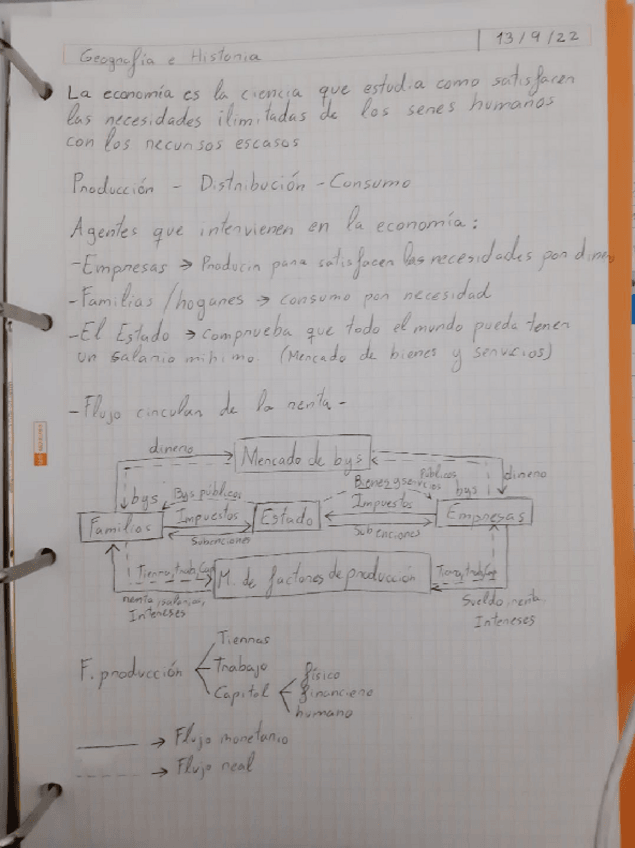 13/9/22
Geografía e Historia
La economía es la ciencia que estudia como satisfacer
las necesidades ilimitadas de los seres humanos
con los recursos escasos
Producción - Distribución - Consumo
Agentes que intervienen en la economía:
- Empresas → Producir para satisfacer las necesidades por dinero
- Familias / hogares → consumo por necesidad
- El Estado → comprueba que todo el mundo pueda tener
un salario mínimo. (Mercado de bienes y servicios)
- Flujo circular de la renta -
dinero
Mercado de bys
dinero
bys
Bys públicos
Bienes y servicios
Públicos
bys
Familias
Impuestos
Estado
Impuestos
Empresas
Subenciones
Subenciones
Tierra, trab, Cap
M. de factores de producción
Tierra, trab, Cap
renta, salarios,
Intereses
Sueldo, renta
Intereses
F. producción
Tierras
Trabajo
Capital
físico
financiero
humano
→ Flujo monetario
→ Flujo real